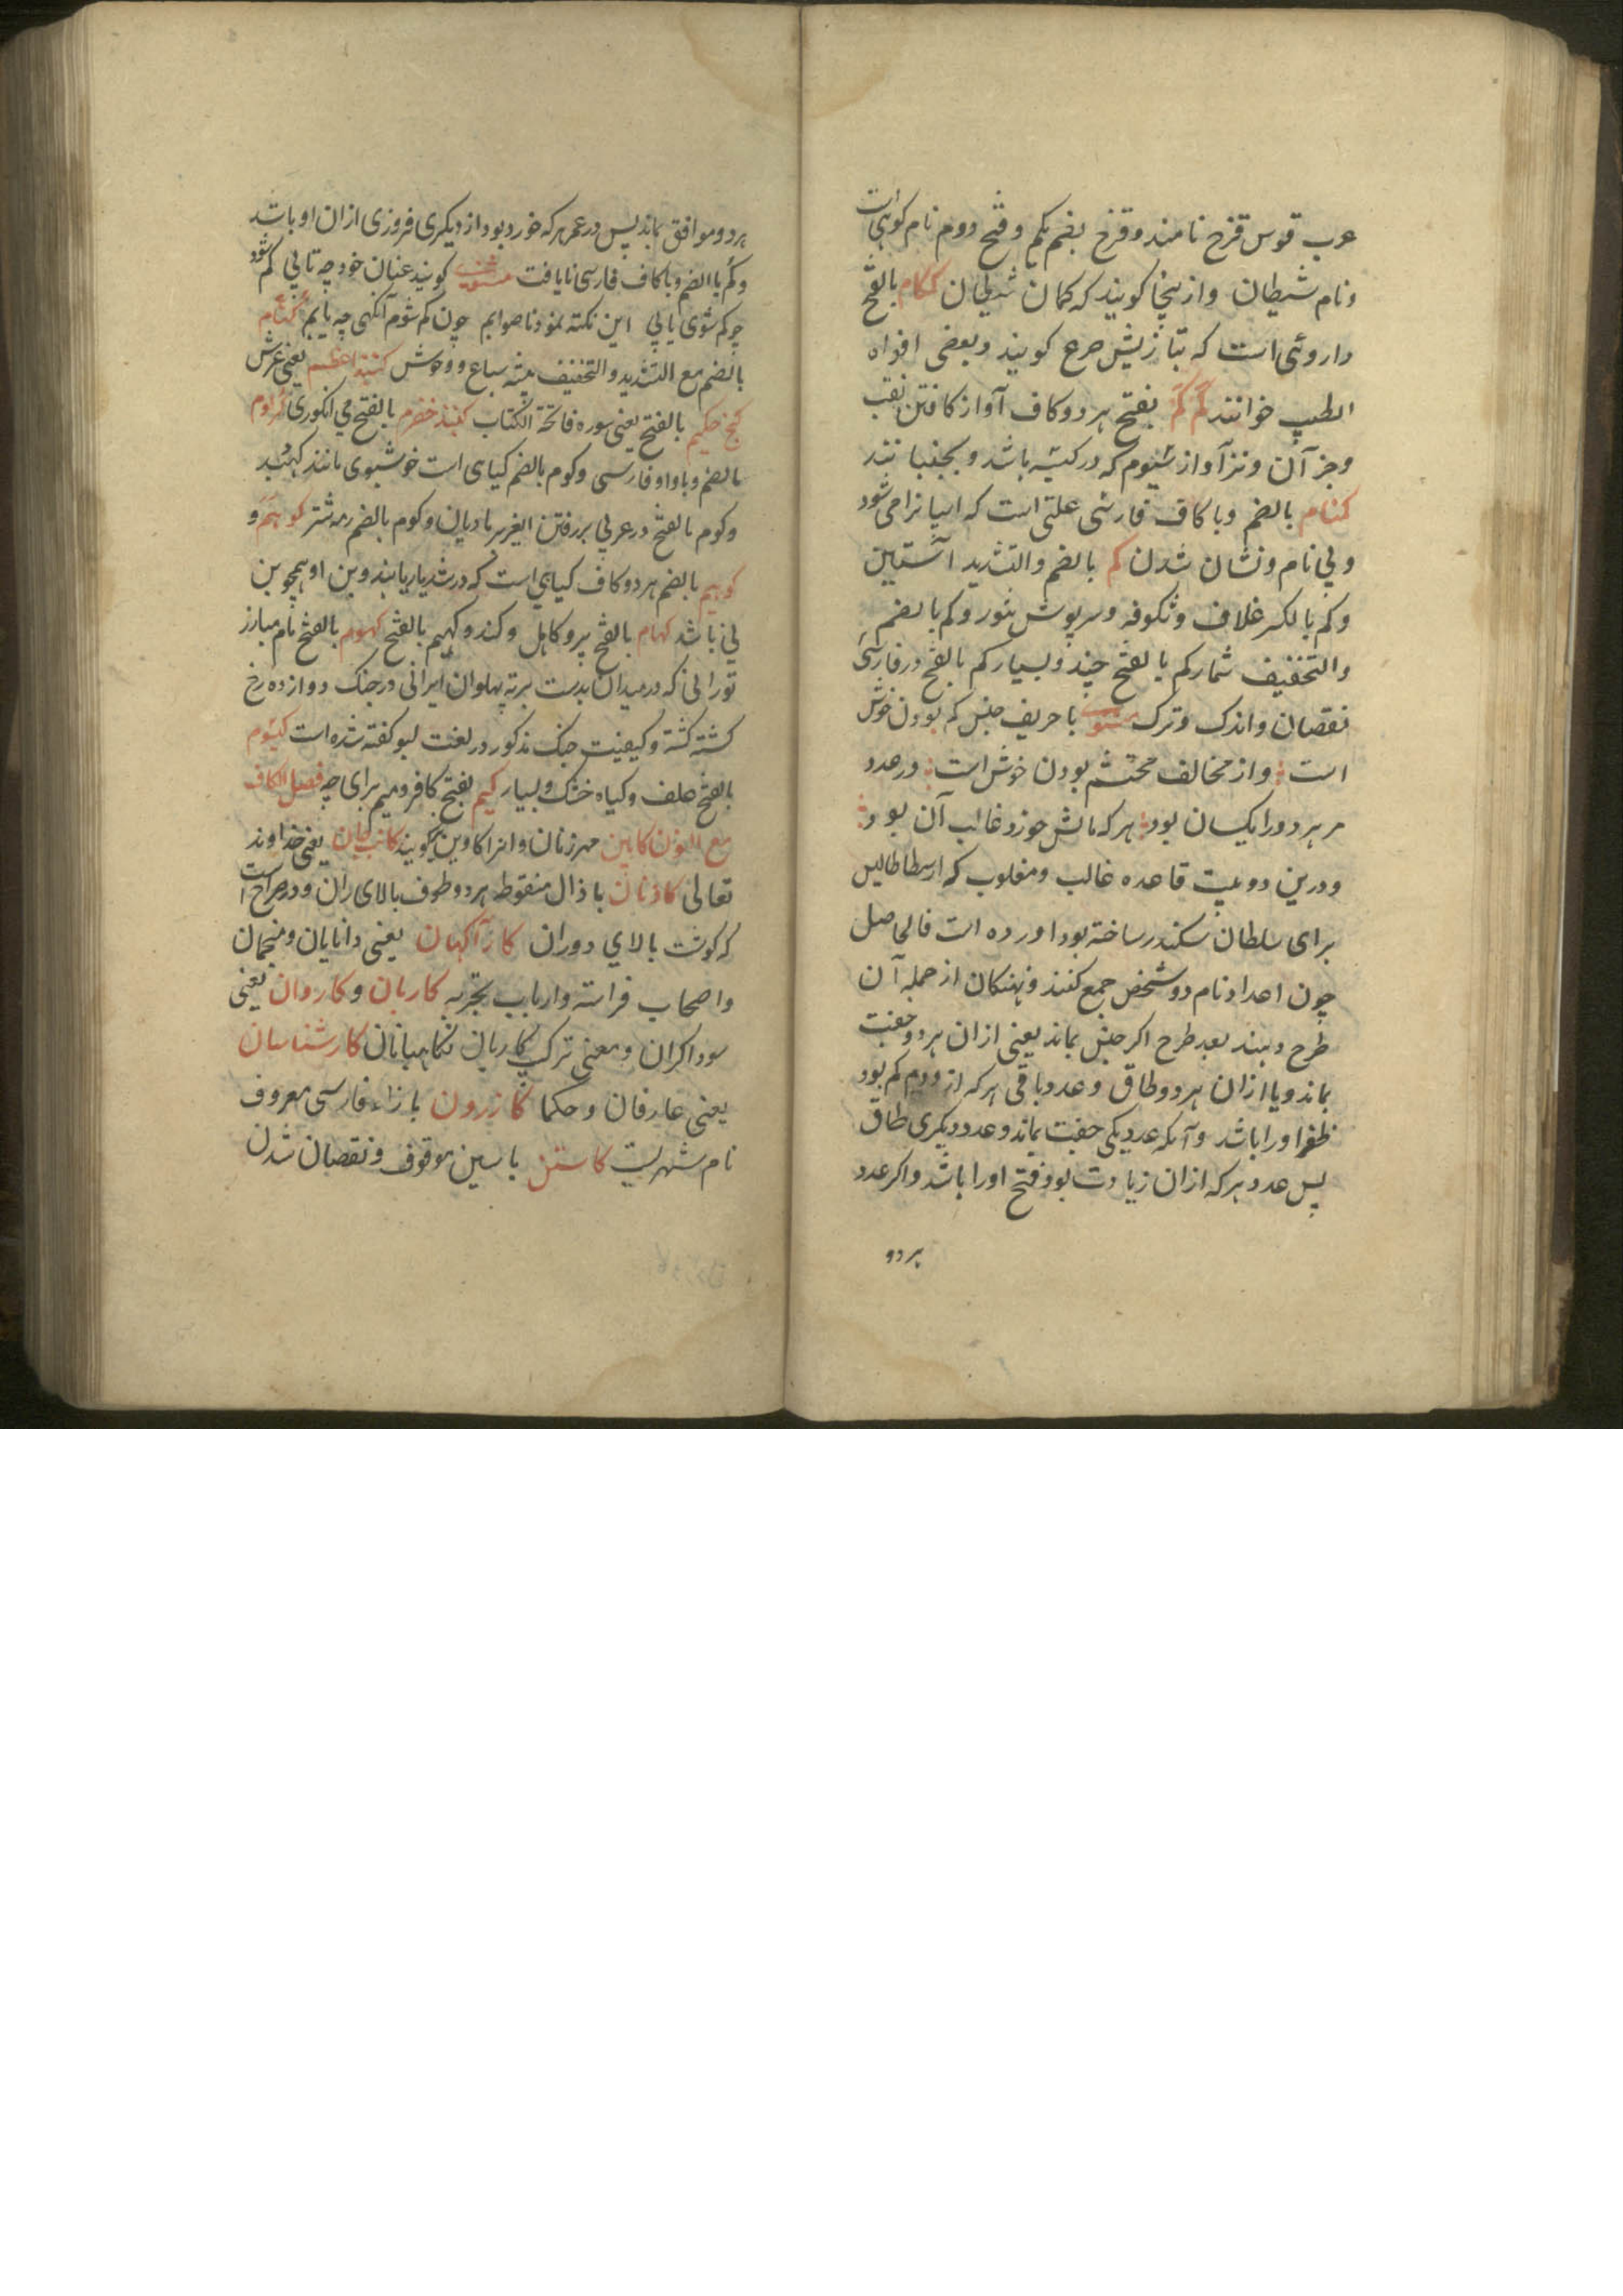 عرب قوس قزح نامند و قزح بضم یکم و فتح دوم نام کوهی است
و نام شیطان و ازینجا کویند که کمان شیطان کمکام بالفتح
داروئی است که بتازیش صرع کویند و بعضی افواه
الطیب خوانند کم کم بفتح هر دو کاف آواز کافتن نقب
و جز آن و نیز آواز که در کیسه باشد و بجنبانند
کمنام بالضم و با کاف فارسی علتی است که اسپانرا می شود
و بی نام و نشان شدن کم بالضم والتشدید آستین
و کم بالکسر غلاف و شکوفه و سرپوش تنور و کم بالضم
والتخفیف شمارکم بالفتح چند و بسیار کم بالفتح در فارسی
نقصان و اندک و ترک مثنوی با حریف جنس کم بودن خوش
است و از مخالف محتشم بودن خوش است ور عدد
مر هر دو را یکسان بود هر که سالش خورد غالب آن بود
و درین دو بیت قاعده غالب و مغلوب که ارسطاطالیس
برای سلطان سکندر ساخته بود اورده است فالحاصل
چون اعداد نام دو شخص جمع کنند و نهنکان از جمله آن
طرح دهند بعد طرح اکر جنس بماند یعنی ازان هر دو جفت
بماند و یا ازان هر دو طاق و عدد باقی هر که از دوم کم بود
ظفر اورا باشد و آنکه عدد یکی جفت بماند و عدد دیکری طاق
پس عدد هر که ازان زیادت بود فتح اورا باشد و اکر عدد
هر دو
هر دو موافق بماند پس در عمر هر که خورد بود از دیکری فروزی ازان او باشد
و کم بالضم و با کاف فارسی نایافت مثنوی کویند عنان خود چه تابی کم شود
چو کم شوی یابی این نکته نمود ناصوابم چون کم شوم آنکهی چه یابم کنام
بالضم مع التشدید والتخفیف بیشه سباع و وحوش کنبد اعظم یعنی عرش
کنج حکیم بالفتح یعنی سوره فاتحة الکتاب کنبد خضرم بالفتح می انکوری کوم
بالضم و با واو فارسی و کوم بالضم کیاهی است خوشبوی مانند
و کوم بالفتح در عربی بر رفتن و کوم بالضم رمه شتر کوهم و
کوهیم بالضم هر دو کاف کیاهی است که در شدیار یابند و بن او همچو بن
نی باشد کهام بالفتح پیر و کاهل و کند و کهیم بالفتح کهوم بالفتح نام مبارز
تورانی که در میدان بدست برته پهلوان ایرانی در جنک دوازده رخ
کشته کشته و کیفیت جنک مذکور در لغت کفته شده است کیشوم
بالفتح علف و کیاه خشک و بسیار کیم بفتح کاف و میم برای چه فصل الکاف
مع النون کابین مهر زنان و انرا کاوین نیز کویند کاتب جان یعنی خداوند
تعالی کاذنان با ذال منقوط هر دو طرف بالای ران و در صراح است
که کوشت بالای دوران کارآکهان یعنی دانایان و منجمان
و اصحاب فراسته و ارباب تجربه کاربان و کاروان یعنی
سوداکران و معنی ترکیب کاربان نکاهبانان کارشناسان
یعنی عارفان و حکما کازرون با زاء فارسی معروف
نام شهریست کاستن با سین موقوف و نقصان شدن